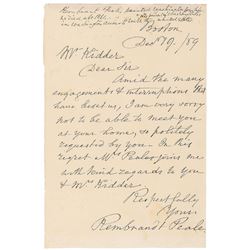 Rembrandt Peale, painted Washington from
Boston
Decr 19. / 59
Mr Kidder
Dear Sir
Amid the many
engagements & interruptions that
have beset us, I am very sorry
not to be able to meet you
at your home, so politely
requested by you. In this
regret Mrs Peale joins me
with kind regards to You
& Mrs Kidder.
Respectfully
Yours
Rembrandt Peale